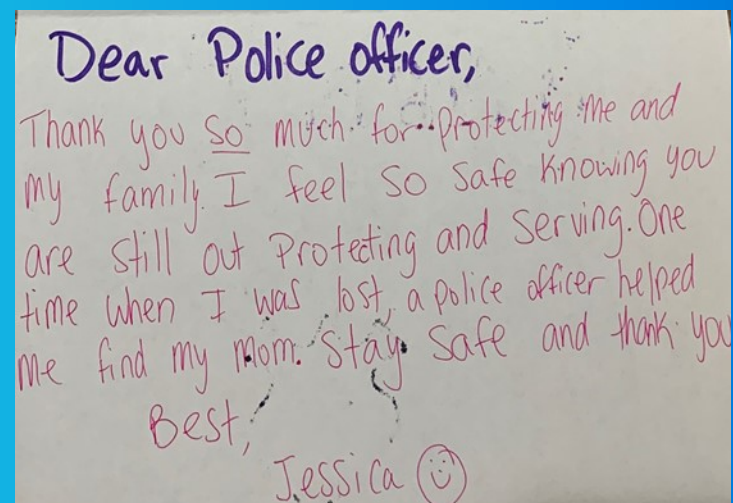 Dear Police officer,
Thank you so much for protecting me and
my family. I feel so safe knowing you
are still out Protecting and serving. One
time when I was lost, a police officer helped
me find my mom. Stay safe and thank you
Best,
Jessica